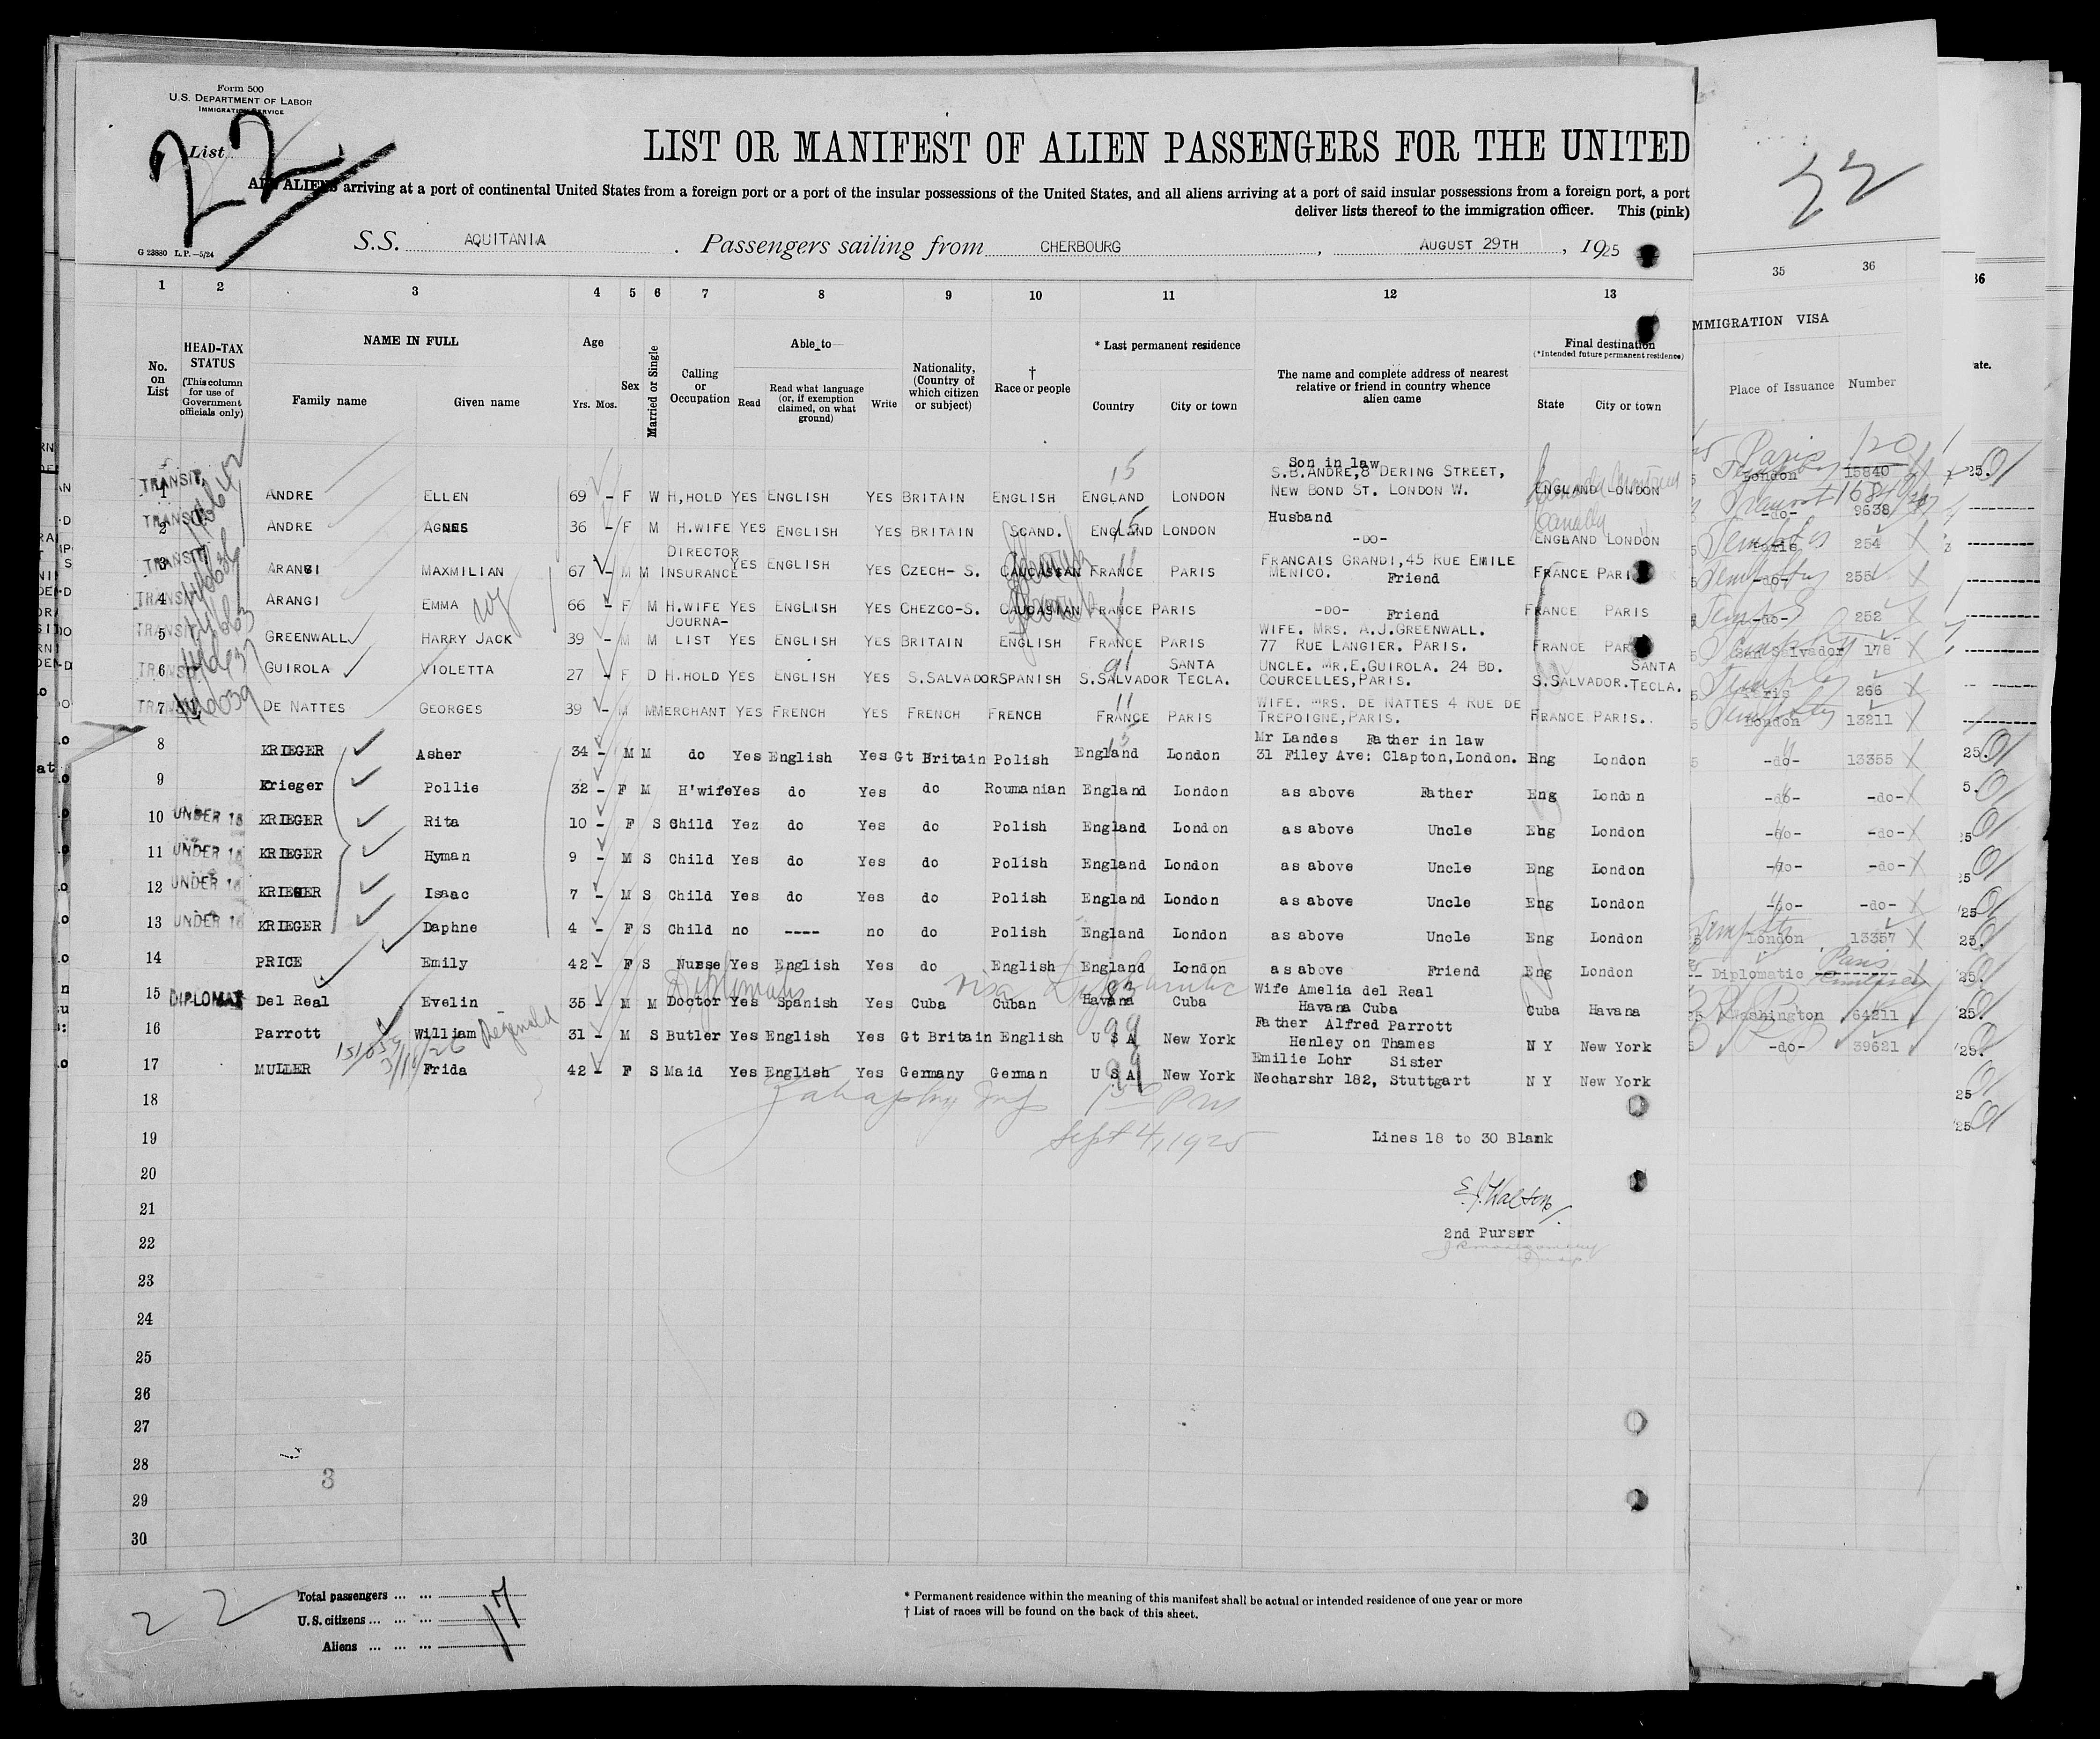 Form 500
U.S. DEPARTMENT OF LABOR
IMMIGRATION SERVICE
List
22
LIST OR MANIFEST OF ALIEN PASSENGERS FOR THE UNITED
ALL ALIENS arriving at a port of continental United States from a foreign port or a port of the insular possessions of the United States, and all aliens arriving at a port of said insular possessions from a foreign port, a port
deliver lists thereof to the immigration officer. This (pink)
G 23880 L.P.—5/24
S.S. AQUITANIA. Passengers sailing from CHERBOURG, AUGUST 29TH, 1925
22
1 2 3 4 5 6 7 8 9 10 11 12 13 35 36
No. on List
HEAD-TAX STATUS (This column for use of Government officials only)
NAME IN FULL
Family name Given name
Age
Yrs. Mos.
Sex
Married or Single
Calling or Occupation
Able to—
Read Read what language (or, if exemption claimed, on what ground) Write
Nationality, (Country of which citizen or subject)
† Race or people
* Last permanent residence
Country City or town
The name and complete address of nearest relative or friend in country whence alien came
Final destination
(*Intended future permanent residence)
State City or town
IMMIGRATION VISA
Place of Issuance Number
Son in law
TRANSIT 1 ANDRE ELLEN 69 - F W H,HOLD YES ENGLISH YES BRITAIN ENGLISH ENGLAND LONDON S.B.ANDRE,8 DERING STREET, NEW BOND ST. LONDON W. ENGLAND LONDON London 15840
TRANSIT 2 ANDRE AGNES 36 - F M H.WIFE YES ENGLISH YES BRITAIN SCAND. ENGLAND LONDON Husband -DO- ENGLAND LONDON -do- 9638
TRANSIT 3 ARANGI MAXMILIAN 67 - M M DIRECTOR INSURANCE YES ENGLISH YES CZECH- S. CAUCASIAN FRANCE PARIS FRANCAIS GRANDI,45 RUE EMILE MENICO. Friend FRANCE PARIS 254
TRANSIT 4 ARANGI EMMA 66 - F M H.WIFE YES ENGLISH YES CHEZCO-S. CAUCASIAN FRANCE PARIS -DO- Friend FRANCE PARIS -do- 255
TRANSIT 5 GREENWALL HARRY JACK 39 - M M JOURNA- LIST YES ENGLISH YES BRITAIN ENGLISH FRANCE PARIS WIFE. MRS. A.J.GREENWALL. 77 RUE LANGIER. PARIS. FRANCE PARIS -do- 252
TRANSIT 6 GUIROLA VIOLETTA 27 - F D H.HOLD YES ENGLISH YES S.SALVADOR SPANISH S.SALVADOR SANTA TECLA. UNCLE. MR.E.GUIROLA. 24 BD. COURCELLES,PARIS. S.SALVADOR. SANTA TECLA. San Salvador 178
TRANSIT 7 DE NATTES GEORGES 39 - M M MERCHANT YES FRENCH YES FRENCH FRENCH FRANCE PARIS WIFE. MRS. DE NATTES 4 RUE DE TREPOIGNE,PARIS. FRANCE PARIS. Paris 266
8 KRIEGER Asher 34 - M M do Yes English Yes Gt Britain Polish England London Mr Landes Father in law 31 Filey Ave: Clapton,London. Eng London London 13211
9 Krieger Pollie 32 - F M H'wife Yes do Yes do Roumanian England London as above Father Eng London -do- 13355
10 UNDER 16 KRIEGER Rita 10 - F S Child Yez do Yes do Polish England London as above Uncle Eng London -do- -do-
11 UNDER 16 KRIEGER Hyman 9 - M S Child Yes do Yes do Polish England London as above Uncle Eng London -do- -do-
12 UNDER 16 KRIEGER Isaac 7 - M S Child Yes do Yes do Polish England London as above Uncle Eng London -do- -do-
13 UNDER 16 KRIEGER Daphne 4 - F S Child no ---- no do Polish England London as above Uncle Eng London -do- -do-
14 PRICE Emily 42 - F S Nurse Yes English Yes do English England London as above Friend Eng London London 13357
15 DIPLOMAT Del Real Evelin 35 - M M Doctor Yes Spanish Yes Cuba Cuban Havana Cuba Wife Amelia del Real Havana Cuba Cuba Havana Diplomatic Paris
Diplomatic visa Diplomatic
16 Parrott William Reginald 31 - M S Butler Yes English Yes Gt Britain English U S A New York Father Alfred Parrott Henley on Thames N Y New York Washington 64211
17 MULLER Frida 42 - F S Maid Yes English Yes Germany German U S A New York Emilie Lohr Sister Necharshr 182, Stuttgart N Y New York -do- 39621
18
19 Sept 4, 1925 Lines 18 to 30 Blank
20
21 E.J. Watson
22 2nd Purser
23
24
25
26
27
28
3
29
30
22
Total passengers ... ...
U.S. citizens ... ... ...
Aliens ... ... ...
17
* Permanent residence within the meaning of this manifest shall be actual or intended residence of one year or more
† List of races will be found on the back of this sheet.